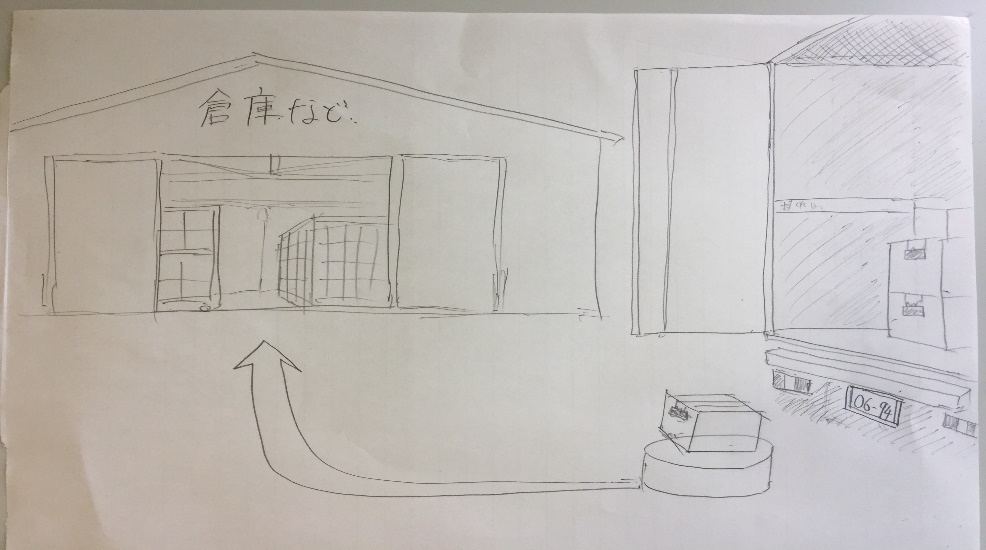 倉庫など.
06-94